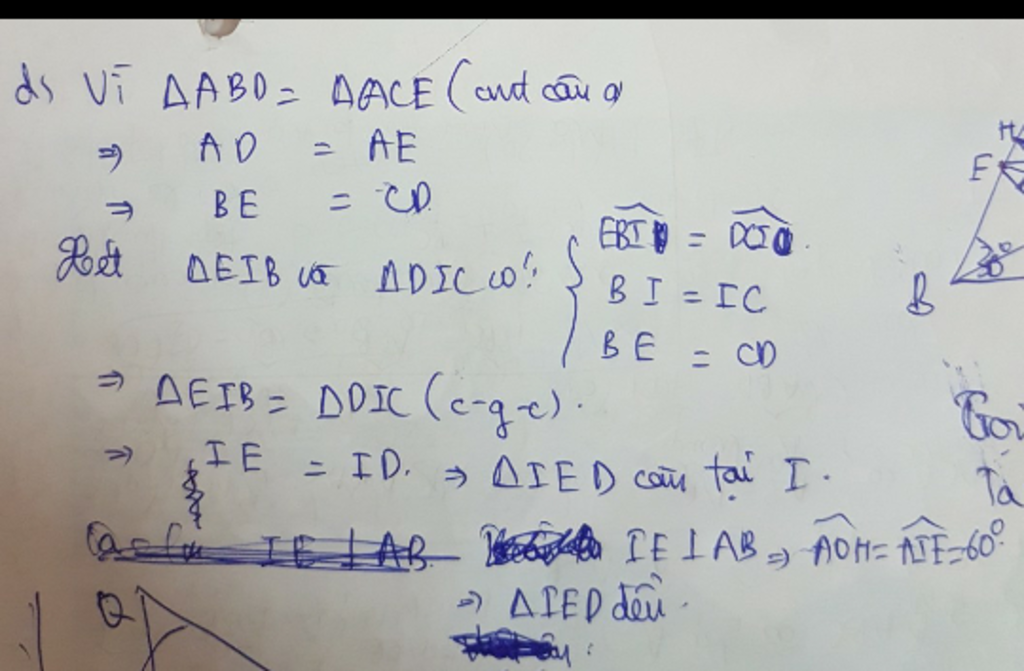 d) Vì ΔABD = ΔACE (cmt câu a
⇒ AD = AE
⇒ BE = CD
Xét ΔEIB và ΔDIC có: { EBI = DCI
BI = IC
BE = CD
⇒ ΔEIB = ΔDIC (c-g-c).
⇒ IE = ID. ⇒ ΔIED cân tại I.
IE ⊥ AB ⇒ AOH = AIE = 60°
⇒ ΔIED đều.
H
E
B
30°
Gọi
Ta
Q